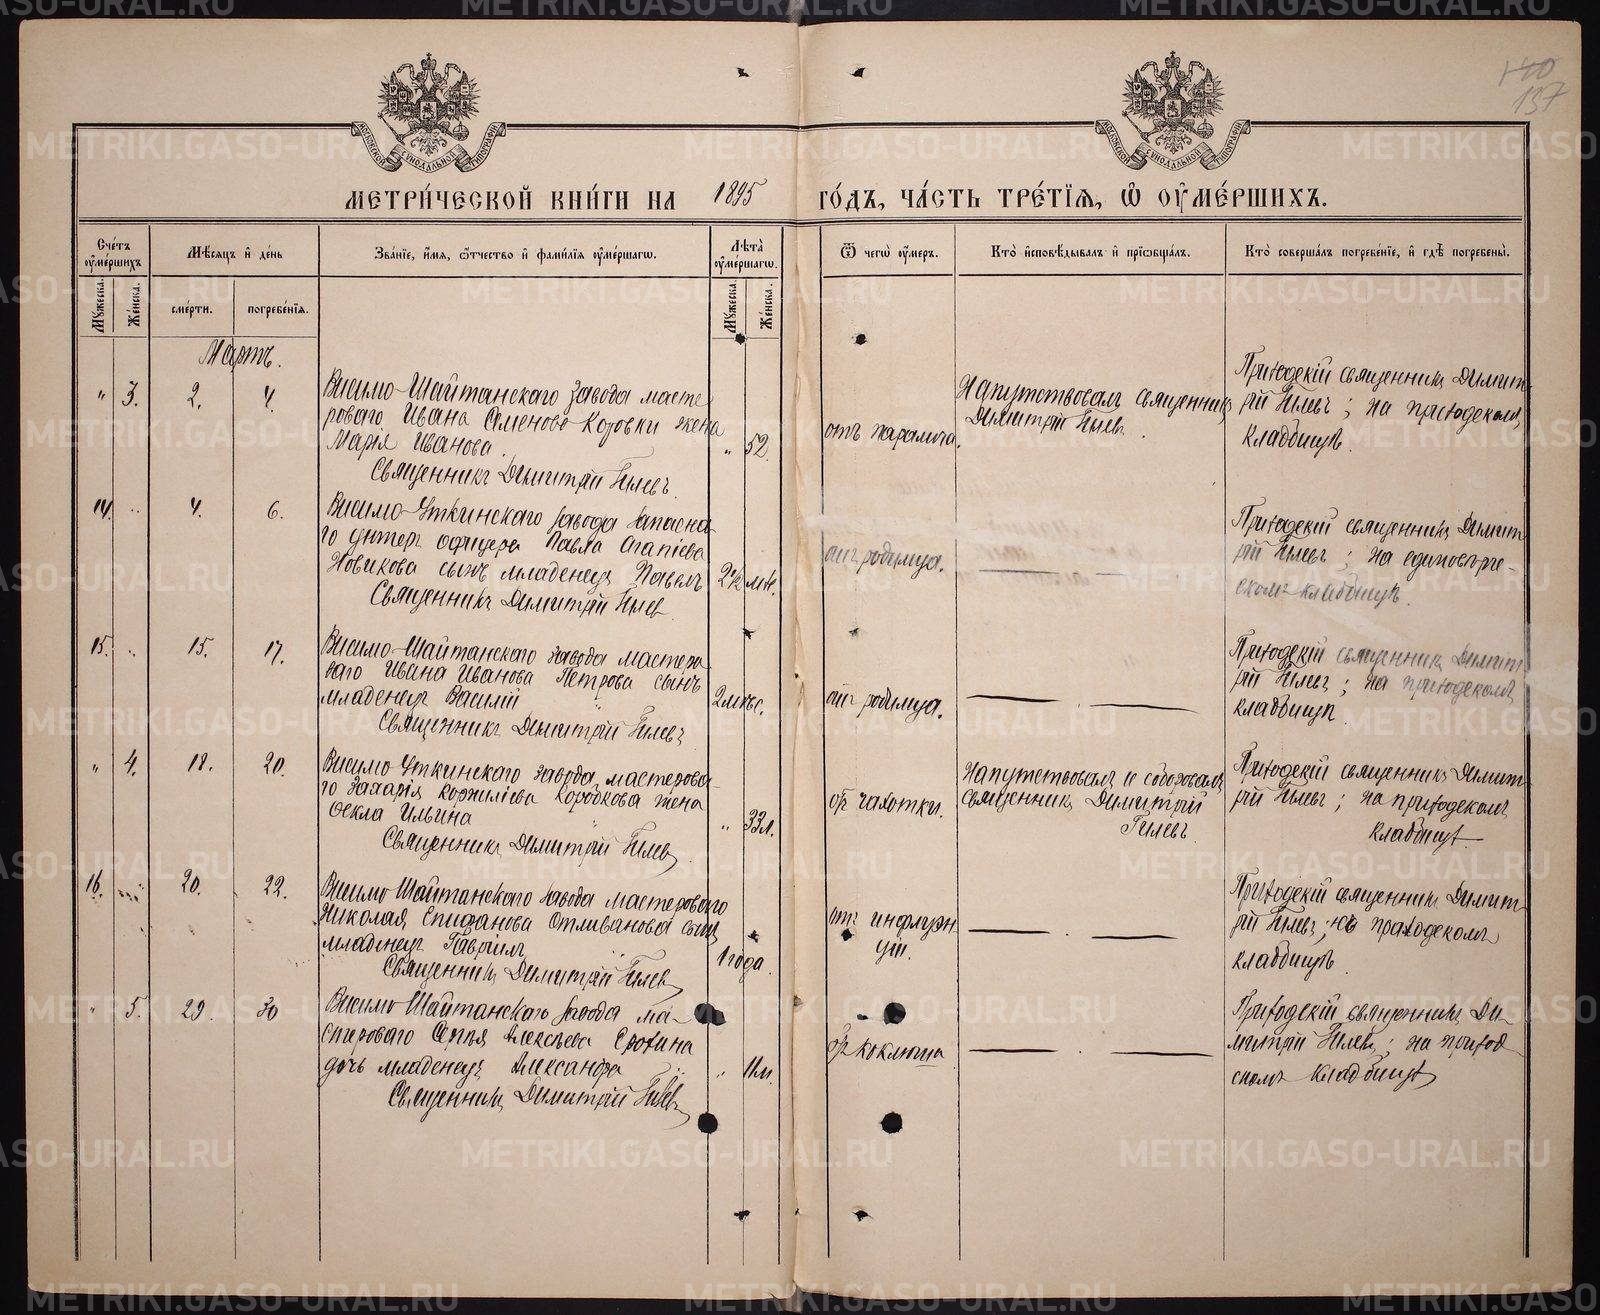 140
137
МЕТРИ́ЧЕСКОЙ КНИ́ГИ НА 1895 ГО́ДЪ, ЧА́СТЬ ТРЕ́ТІЯ, Ѿ ОУМЕ́РШИХЪ.
Сче́тъ оуме́ршихъ
Мѣ́сяцъ и де́нь
Зва́ніе, и́мя, ѻ́тчество и фами́лія оуме́ршагѡ.
Лѣта̀ оуме́ршагѡ.
Ѿ чегѡ̀ оу́меръ.
Кто̀ исповѣ́дывалъ и пріѡбща́лъ.
Кто̀ соверша́лъ погребе́ніе, и гдѣ̀ погребены̀.
Му́жеска.
Же́нска.
сме́рти.
погребе́нія.
Му́жеска.
Же́нска.
Мартъ.
" 3. 2. 4.
Висимо-Шайтанскаго завода масте
роваго Ивана Семенова Коровки жена
Марія Иванова. " 52.
Священникъ Димитрій Гилевъ.
отъ паралича.
Напутствовалъ священникъ
Димитрій Гилевъ.
Приходскій священникъ Димит
рій Гилевъ; на приходскомъ
кладбищѣ.
14. " 4. 6.
Висимо-Уткинскаго завода запасна
го унтеръ офицера Павла Агапіева
Новикова сынъ младенецъ Павелъ 2½ мѣ.
Священникъ Димитрій Гилев.
отъ родимца.
Приходскій священникъ Димит
рій Гилевъ; на единовѣрче-
скомъ кладбищѣ.
15. " 15. 17.
Висимо-Шайтанскаго завода мастеро
ваго Ивана Иванова Петрова сынъ
младенецъ Василій 2 мѣс.
Священникъ Димитрій Гилевъ
отъ родимца.
Приходскій священникъ Димит
рій Гилевъ; на приходскомъ
кладбищѣ.
" 4. 18. 20.
Висимо Уткинскаго завода мастерова
го Захарія Корнилiева Коробкова жена
Ѳекла Ильина " 33 л.
Священникъ Димитрій Гилев
отъ чахотки.
Напутствовалъ и соборовалъ
священникъ Димитрій
Гилевъ
Приходскій священникъ Димит
рій Гилевъ; на приходскомъ
кладбищѣ
16. " 20. 22.
Висимо Шайтанскаго завода мастероваго
Николая Спиданова Отливанова сынъ
младенецъ Гавріилъ 1 года.
Священникъ Димитрій Гилев
отъ инфлуэн
ціи.
Приходскій священникъ Димит
рій Гилевъ; на приходскомъ
кладбищѣ
" 5. 29. 30
Висимо Шайтанскаго завода ма-
стероваго Алексѣева Срохина
дочь младенецъ Александра " 11 м.
Священникъ Димитрій Гилев
отъ коклюша
Приходскій священникъ Ди-
митрій Гилевъ; на приход
скомъ кладбищѣ
METRIKI.GASO-URAL.RU